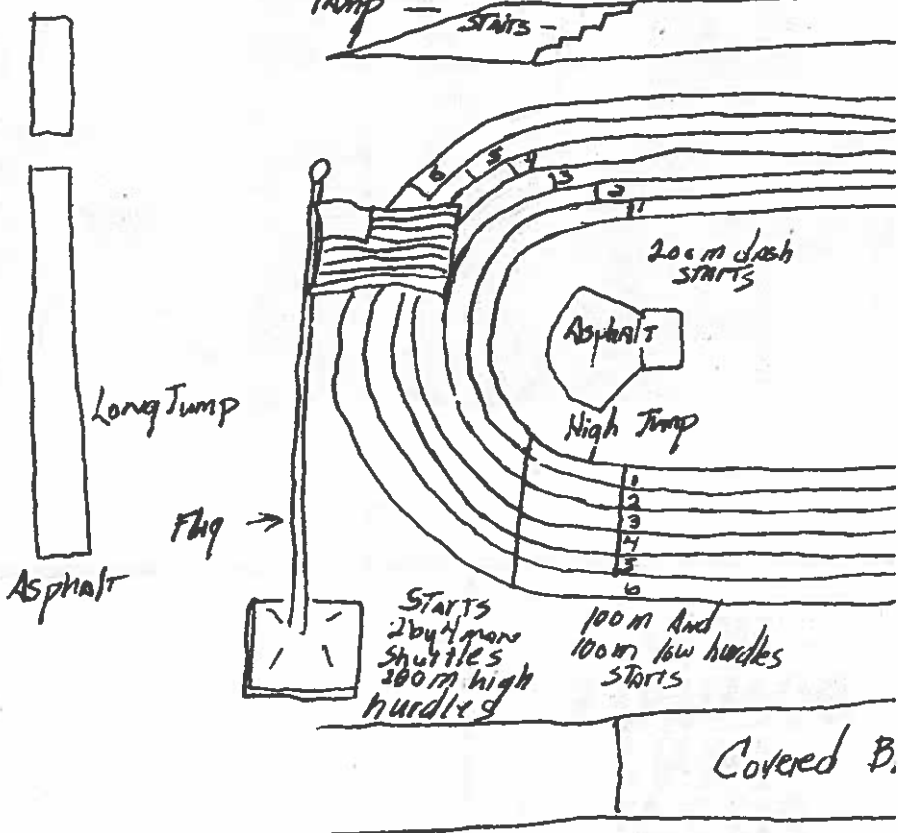 STAIRS -
6
5
4
3
2
1
200m dash
STARTS
Asphalt
High Jump
Long Jump
Flag →
Asphalt
1
2
3
4
5
6
Starts
2 by 4 more
shuttles
high
hurdles
100m And
100m low hurdles
STARTS
Covered